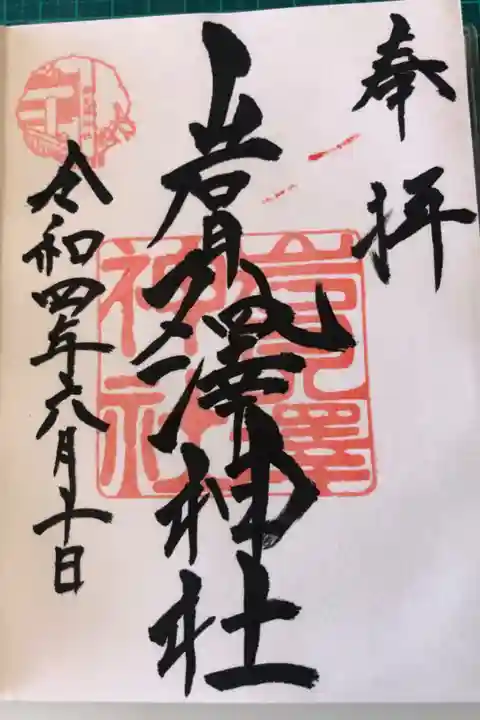 奉拝
岩見澤神社
令和四年六月十日
岩見澤
神社